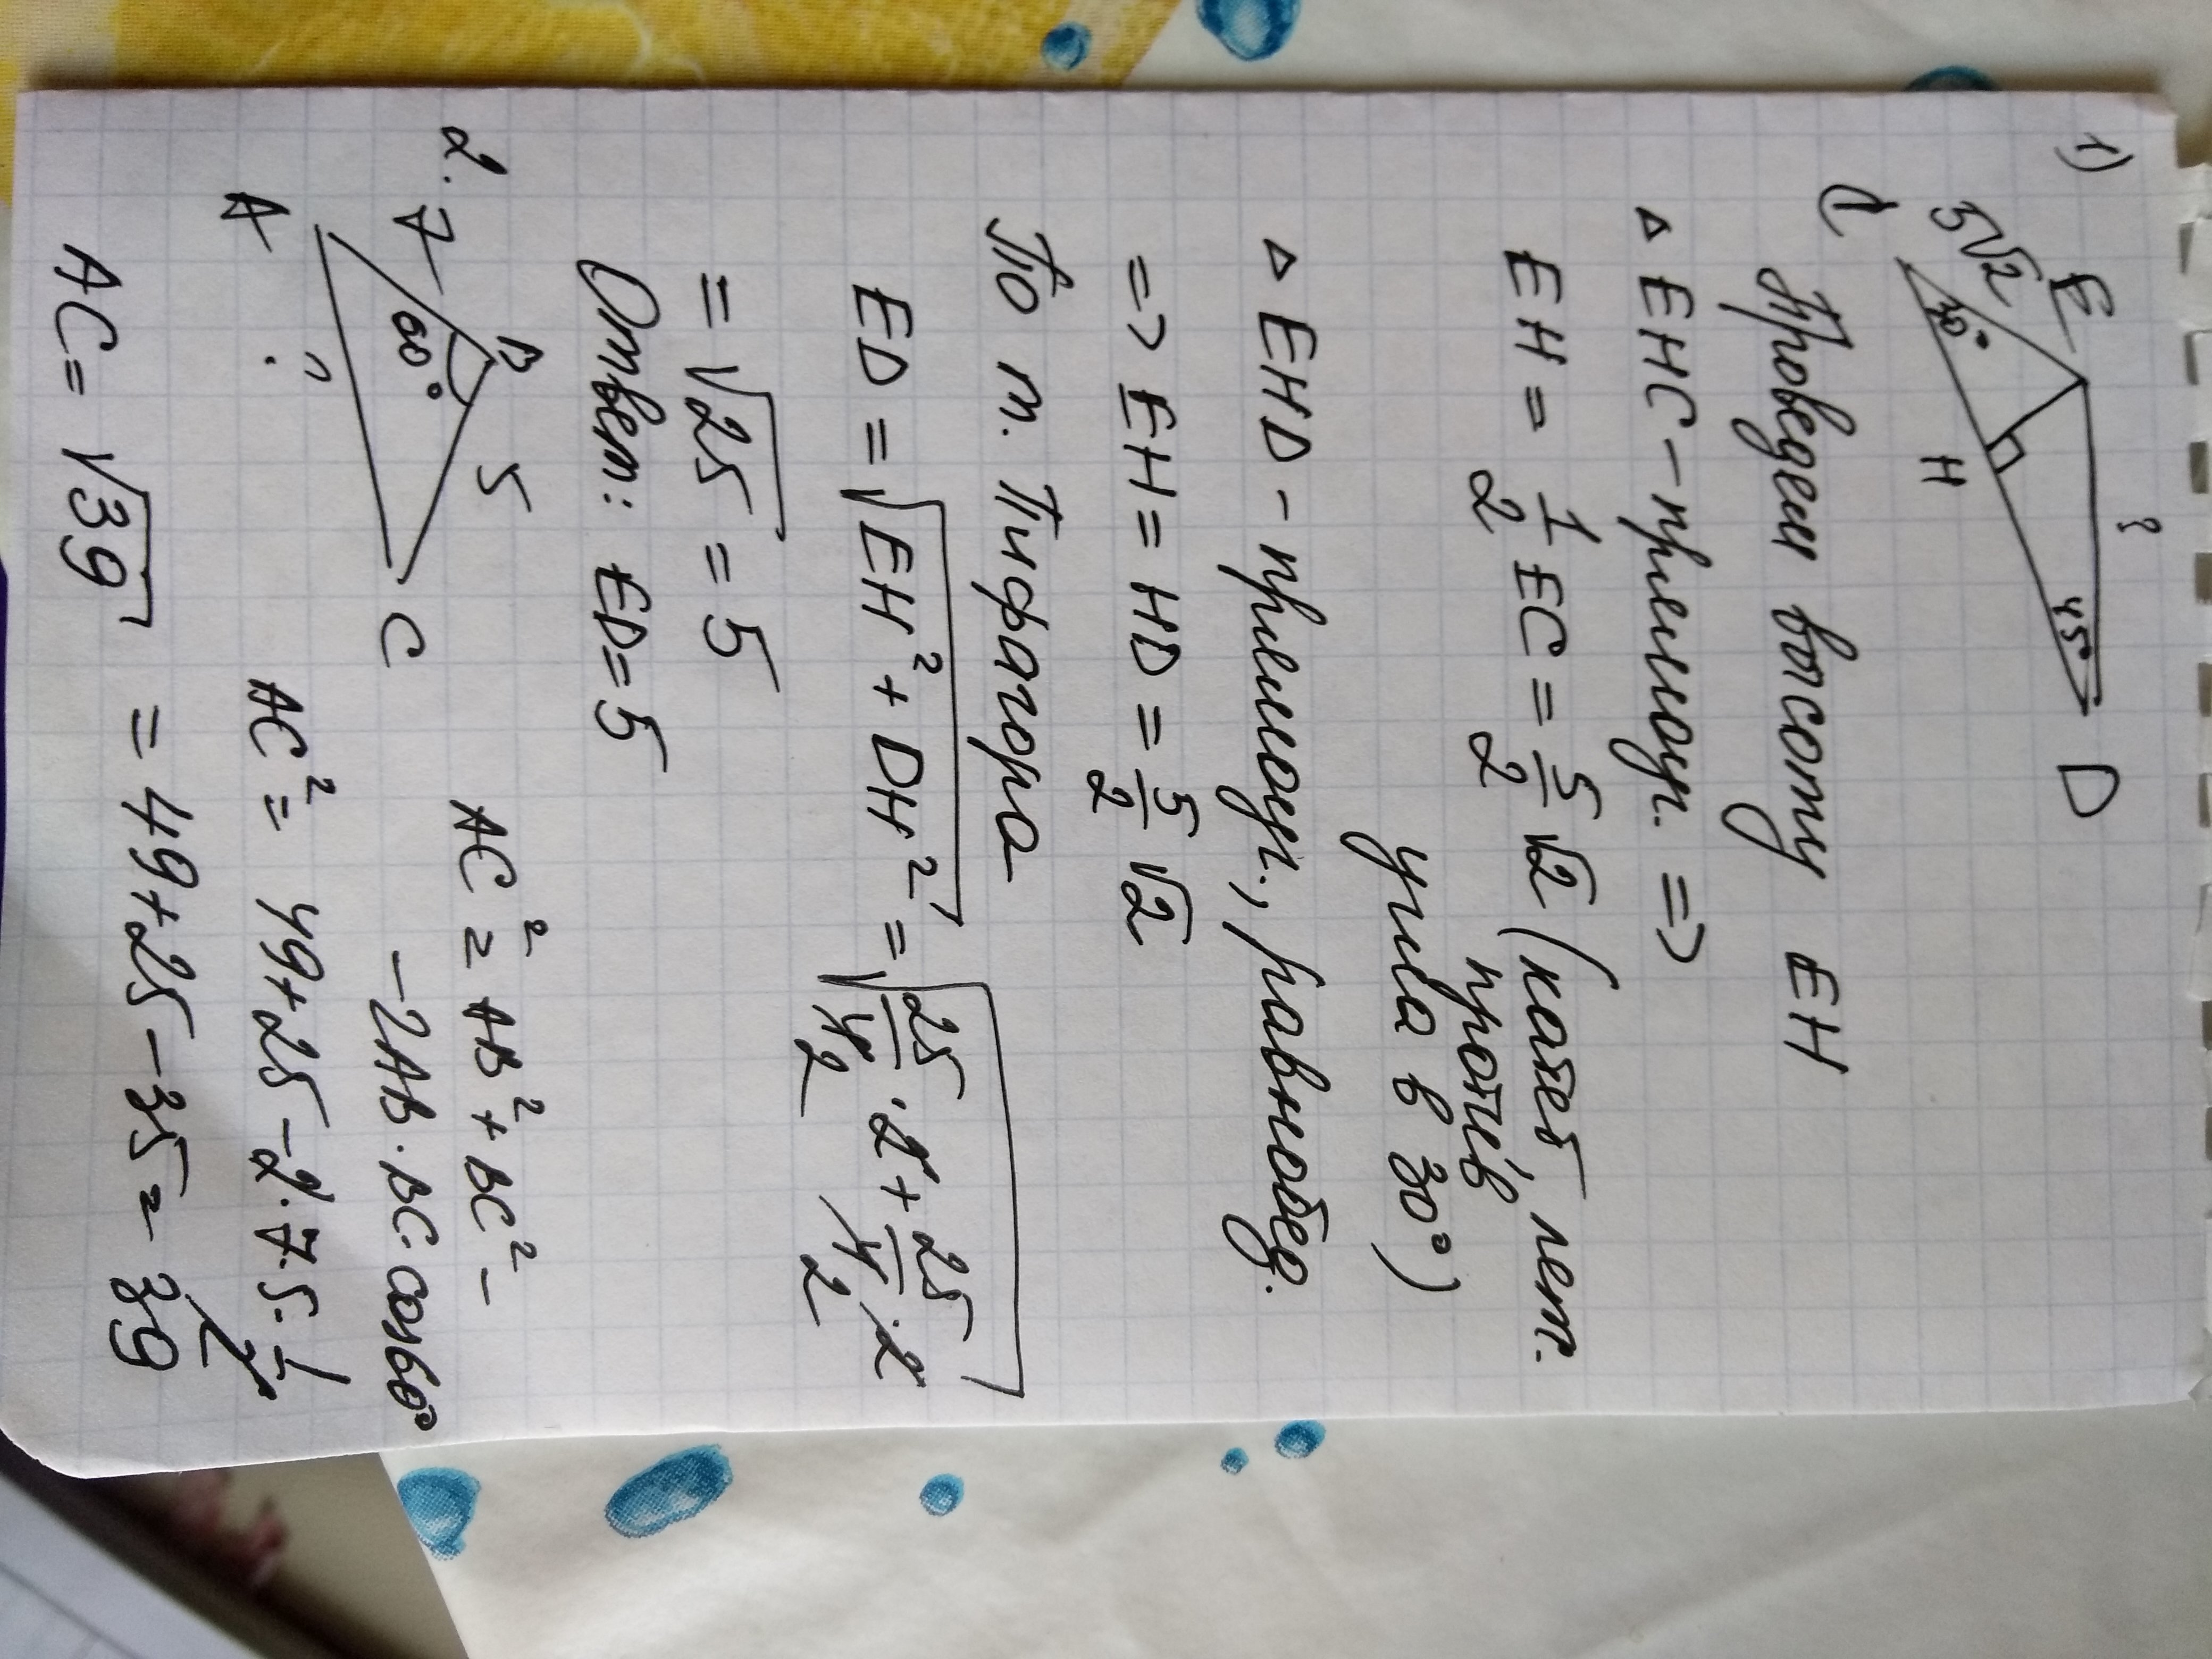 1)
E
5√2
?
C
30°
45°
D
H
Проведем высоту EH
△ EHC - прямоуг. =>
EH = 1/2 EC = 5/2 √2 (катет, леж.
против
угла в 30°)
△ EHD - прямоуг., равнобед.
=> EH = HD = 5/2 √2
По т. Пифагора
ED = √(EH² + DH²) = √(25/4 · 2 + 25/4 · 2)
2 2
= √25 = 5
Ответ: ED = 5
2.
B
7
5
60°
A
C
?
AC² = AB² + BC² -
- 2AB · BC · cos60°
AC² = 49 + 25 - 2 · 7 · 5 · 1/2
= 49 + 25 - 35 = 39
AC = √39